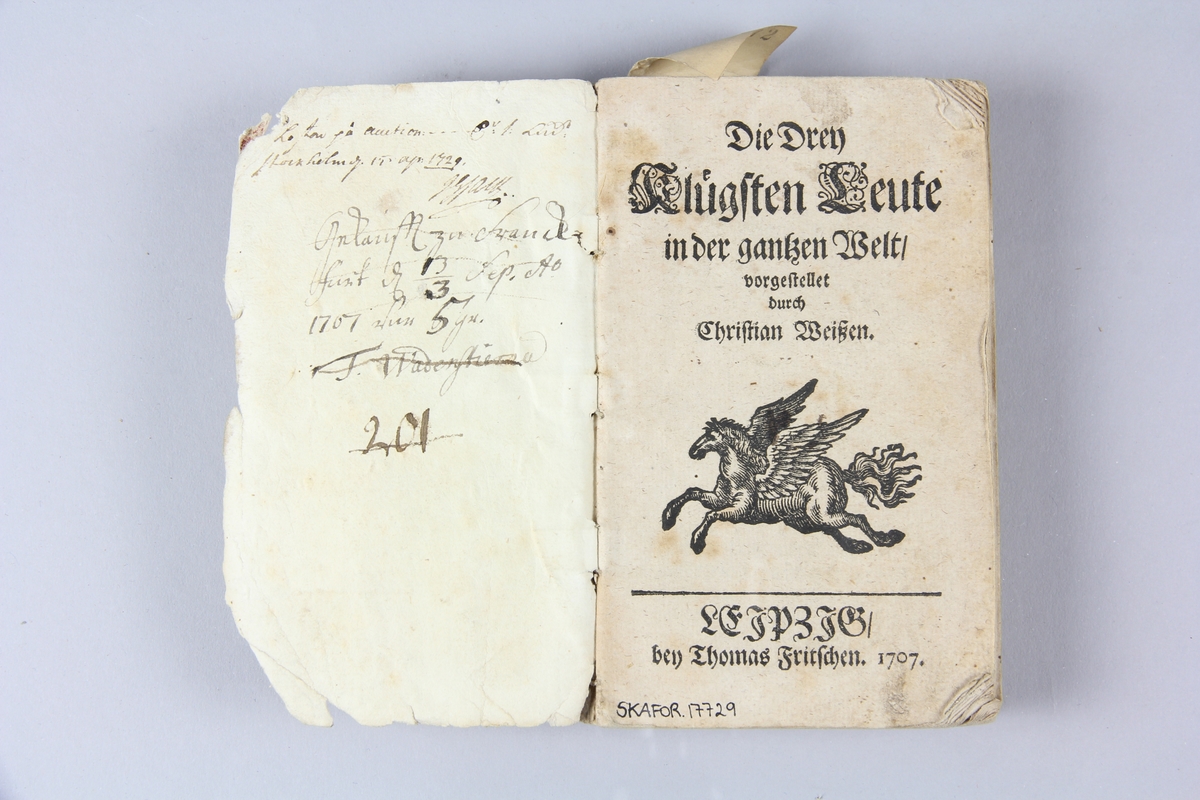 på auction
Stockholm d. 15 ap. 1729.
Gekaufft zu Franck-
furt d 13/3 Sep. Ao
1707 vur 5 gr.
F. Wadenstierna
201
2
Die Drey
Klügsten Leute
in der gantzen Welt/
vorgestellet
durch
Christian Weißen.
LEIPZIG/
bey Thomas Fritschen. 1707.
SKAFOR.17729